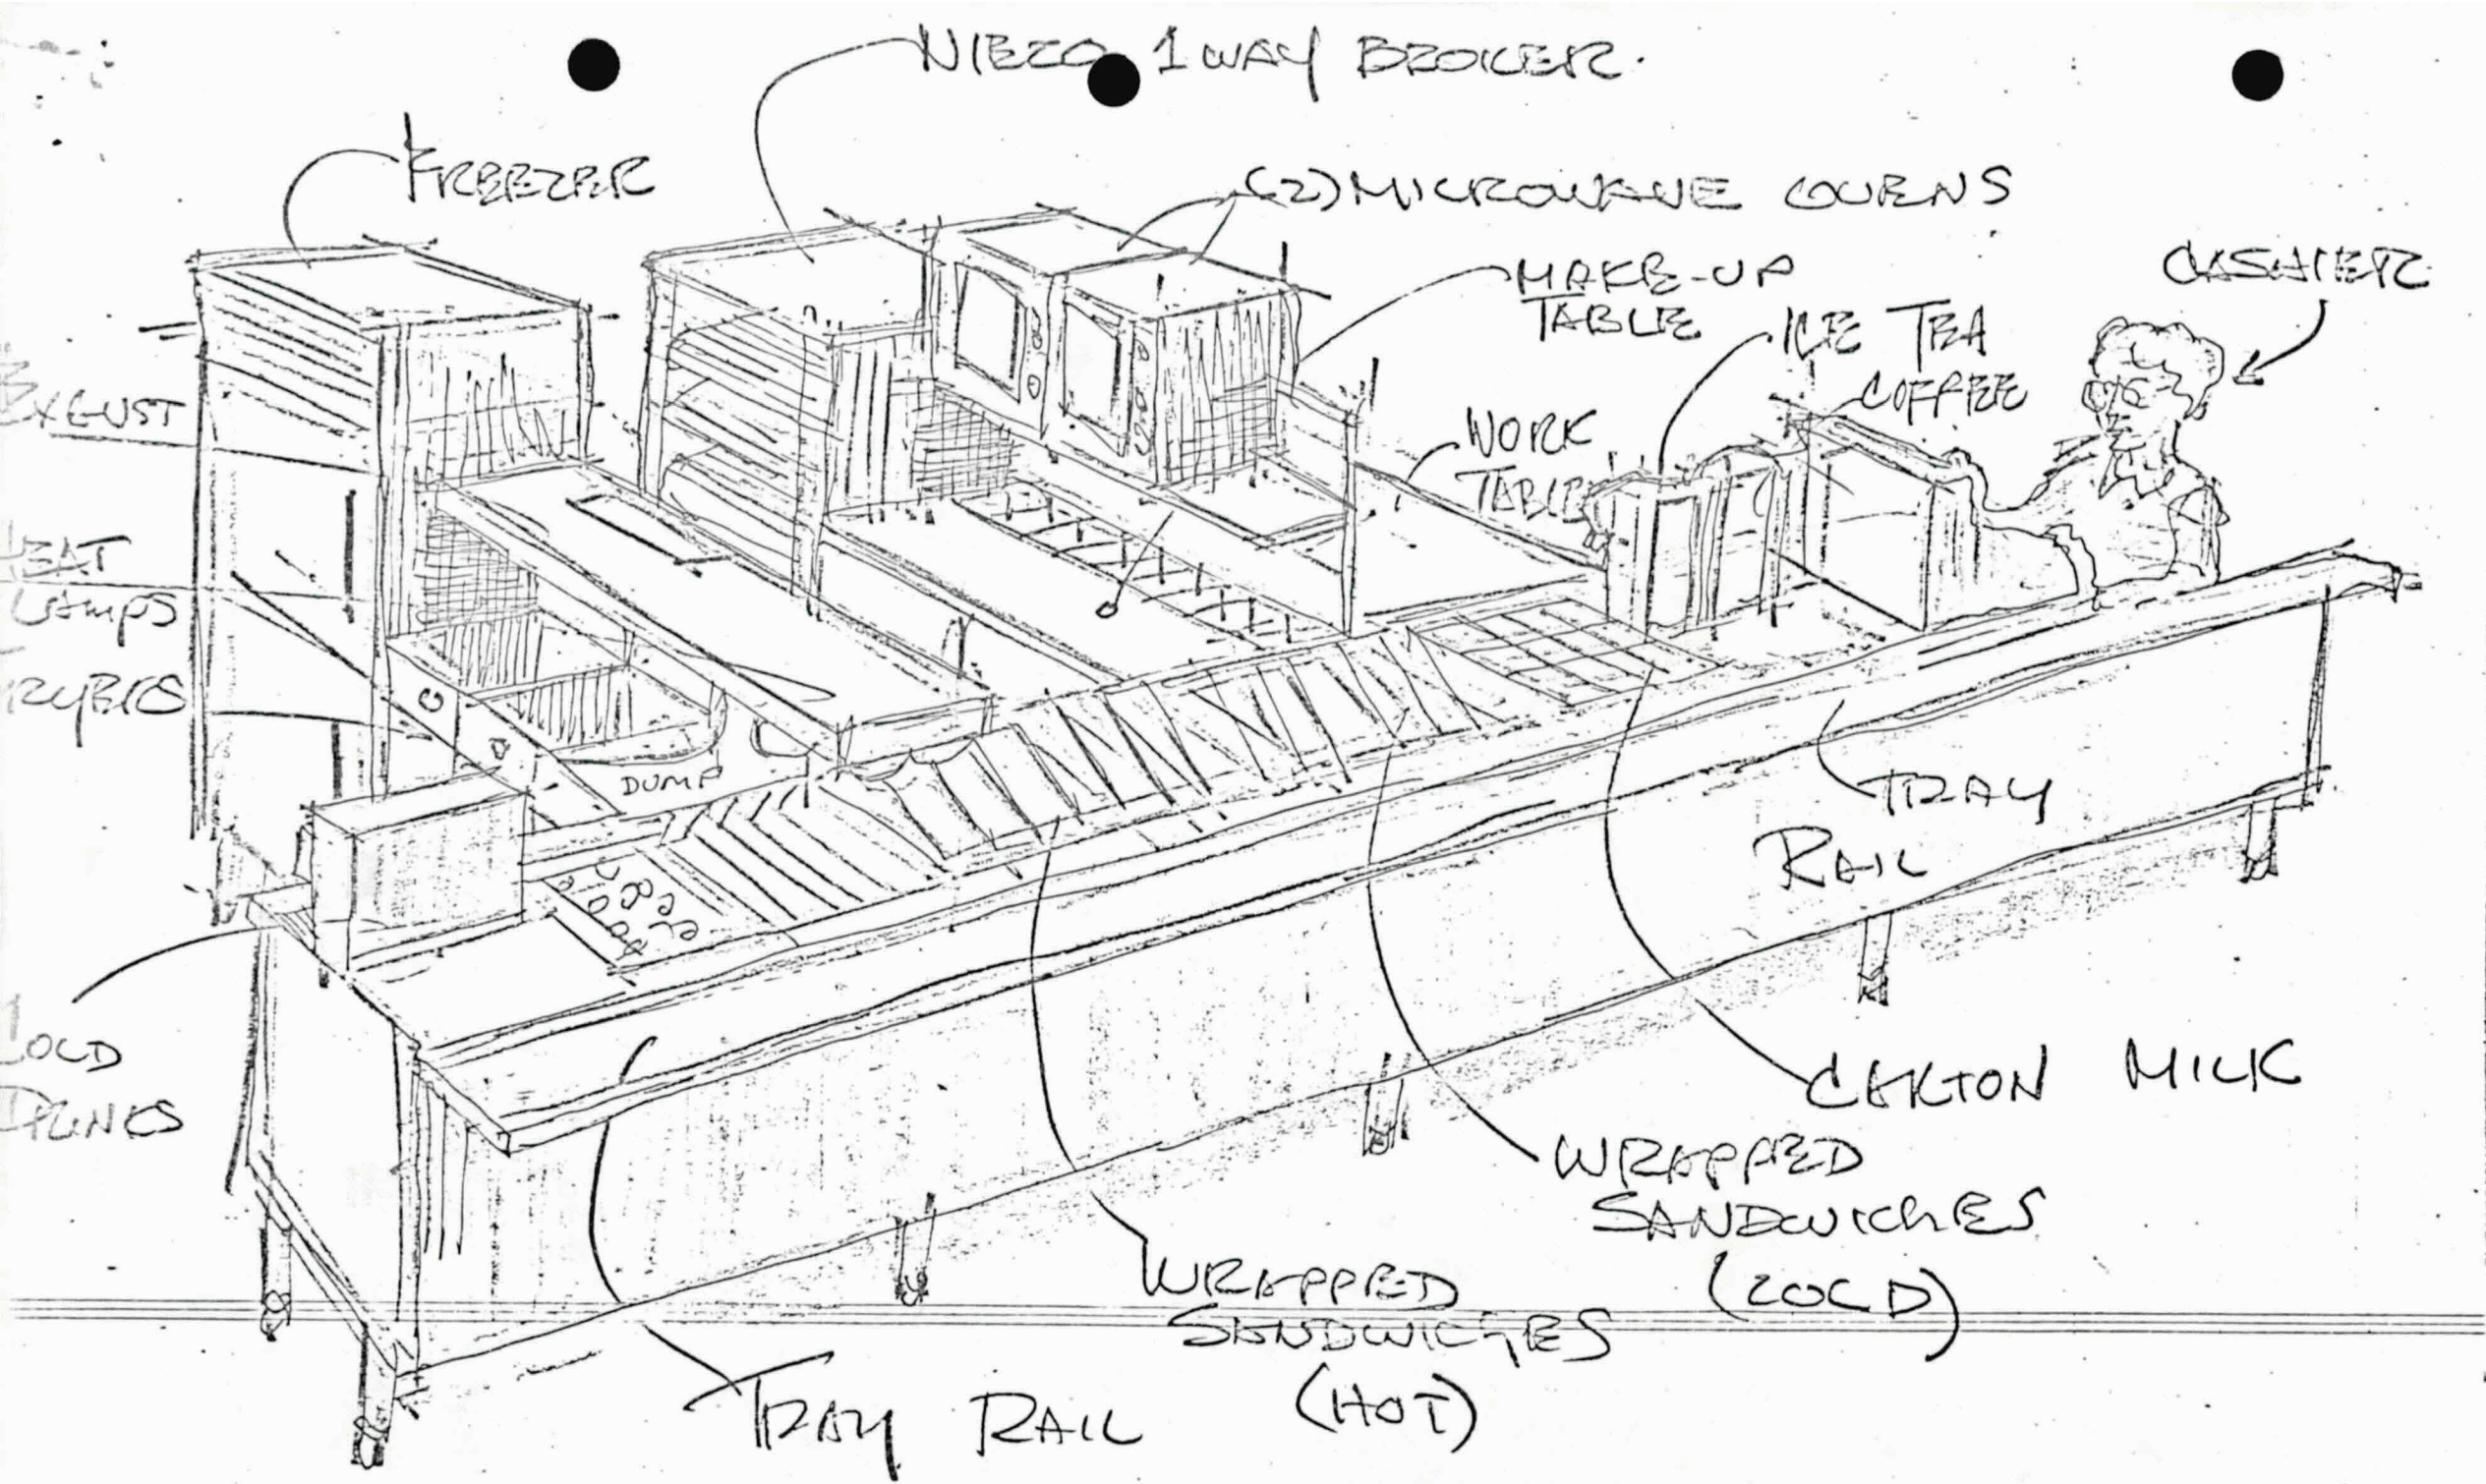 NIECO 1 WAY BROILER.
FREEZER
(2) MICROWAVE OVENS
MAKE-UP
TABLE
CASHIER
ICE TEA
COFFEE
EXGUST
WORK
TABLE
HEAT
LAMPS
FRYERS
DUMP
TRAY
RAIL
COLD
DRINKS
CARTON MILK
WRAPPED
SANDWICHES
(COLD)
WRAPPED
SANDWICHES
(HOT)
TRAY RAIL